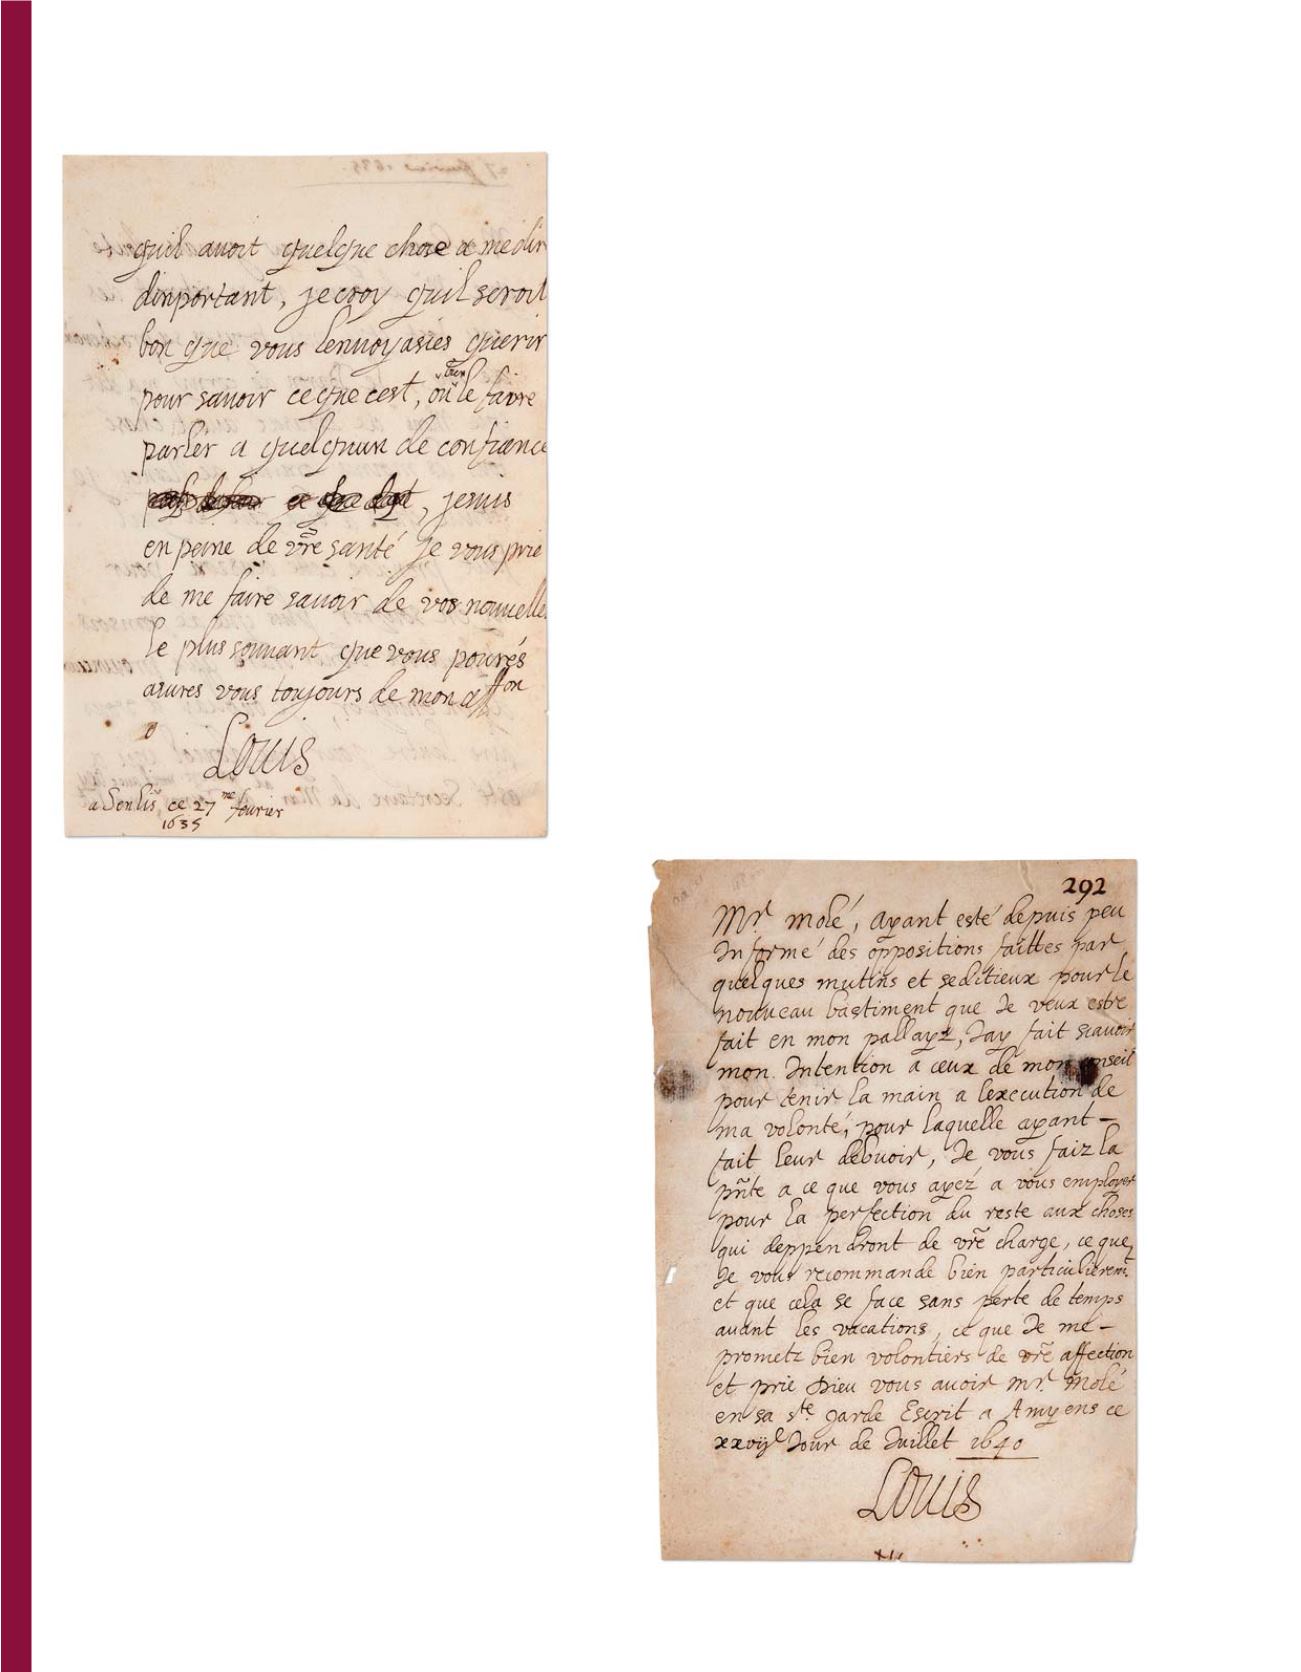 quil auoit quelque chose a medir
dinportant, je croy quil seroit
bon que vous lenuoyasies querir
pour sauoir ce que cest, ou bien le faire
parler a quelquun de confiance
, jesuis
en peine de vr̃e santé je vous prie
de me faire sauoir de vos nouuelle
le plus souuant que vous pourés
asures vous toujours de mon affon
Louis
a Senlis ce 27me feurier
1635
292
Mr. molé, ayant esté depuis peu
Informé des oppositions faittes par
quelques mutins et seditieux pour le
nouueau bastiment que Je veux estre
fait en mon pallays, Jay fait scauoir
mon Intention a ceux de mon conseil
pour tenir la main a lexecution de
ma volonté, pour laquelle ayant
fait leur debuoir, Je vous faiz la
pñte a ce que vous ayez a vous employer
pour la perfection du reste aux choses
qui deppendront de vr̃e charge, ce que
Je vous recommande bien particulierem̃t
et que cela se face sans perte de temps
auant les vacations, ce que Je me
prometz bien volontiers de vr̃e affection
et prie Dieu vous auoir mr. molé
en sa ste. garde Escrit a Amyens ce
xxvije Jour de Juillet 1640
Louis